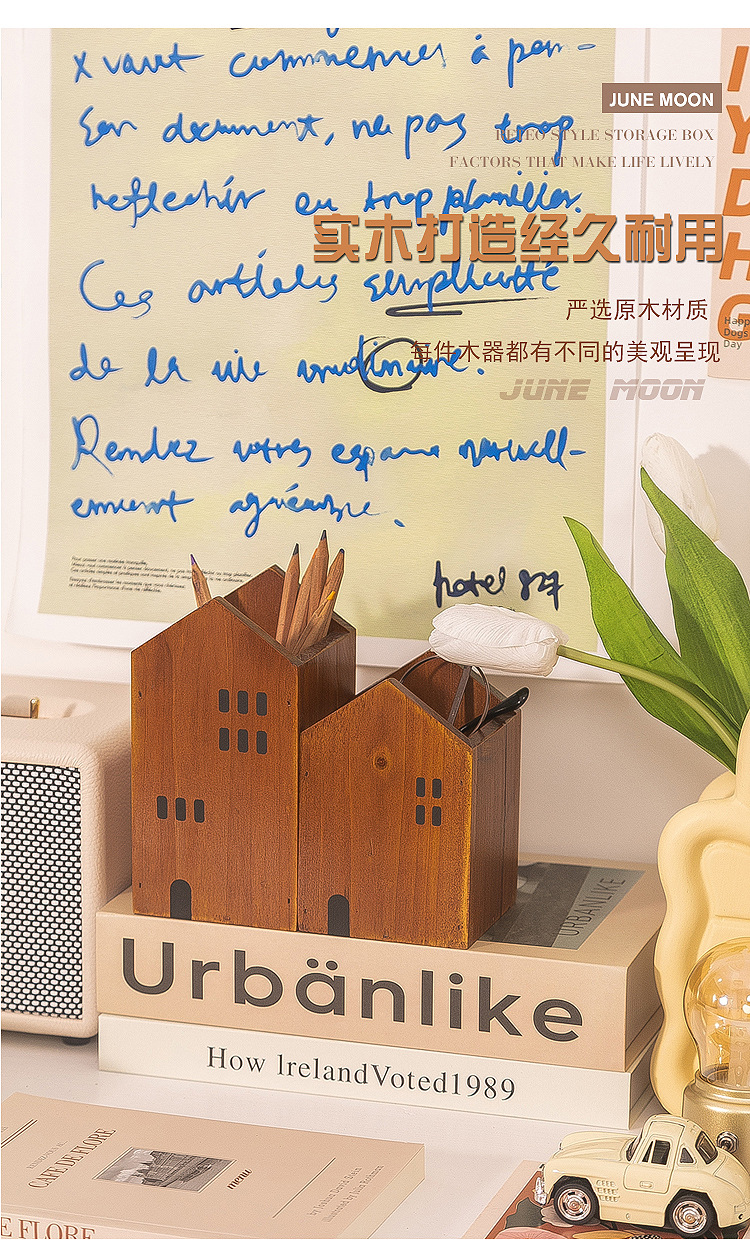 x vaut commencer à pen-
Ser document, ne pas trop
reflechir ou trop planifier.
Ces articles simplicité
de la vie
Rendez votre espace
agréable.
hotel 827
JUNE MOON
RETRO STYLE STORAGE BOX
FACTORS THAT MAKE LIFE LIVELY
实木打造经久耐用
严选原木材质
每件木器都有不同的美观呈现
JUNE MOON
I
Y
D
H
G
Happ
Dogs
Day
URBANLIKE
Urbänlike
How lrelandVoted1989
CAFE DE FLORE
menu
E FLORE